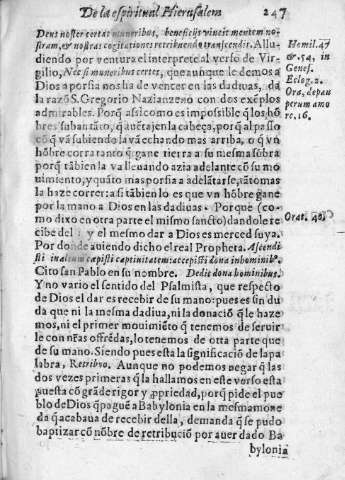 De la espiritual Hierusalem 247
Deus noster certat muneribus, beneficijs vincit mentem no-
stram, & nostras cogitationes retribuendo transcendit. Allu-
diendo por ventura el interprete al verso de Vir-
gilio, Nec si muneribus certes, que aunque le demos a
Dios a porfia nos ha de vencer en las dadiuas, da
la razō S. Gregorio Nazianzeno con dos exēplos
admirables. Porq̄ assi como es impossible q̄ los hō-
bres suban tāto, q̄ auētajen la cabeça, porq̄ al passo
cō q̄ vā subiendo la vā echando mas arriba, o q̄ vn
hōbre corra tanto q̄ gane tierra a su mesma sōbra
porq̄ tābien la va lleuando azia adelante cō su mo
uimiento, y quāto mas porfia a adelātarse, tāto mas
la haze correr: assi tābien lo es que vn hōbre gane
por la mano a Dios en las dadiuas. Porque (co-
mo dixo en otra parte el mismo sancto) dandole re
cibe del: y el mesmo dar a Dios es merced suya.
Por donde auiendo dicho el real Propheta. Ascendi-
sti in altum cæpisti captiuitatem: accepisti dona in hominibꝰ.
Cito san Pablo en su nombre. Dedit dona hominibus.
Y no vario el sentido del Psalmista, que respecto
de Dios el dar es recibir de su mano: pues es sin du
da que ni la mesma dadiua, ni la donaciō q̄ le haze
mos, ni el primer mouimiēto q̄ tenemos de seruir
le con nr̄as ofrēdas, lo tenemos de otra parte que
de su mano. Siendo pues esta la significació de la pa
labra, Retribuo. Aunque no podemos negar q̄ las
dos vezes primeras q̄ la hallamos en este verso esta
puesta cō grāde rigor y ꝓpriedad, porq̄ pide el pue
blo de Dios q̄ paguē a Babylonia en la mesma mone
da q̄ acabaua de recebir della, demanda q̄ se pudo
baptizar cō nōbre de retribuciō por auer dado Ba
bylonia
Homil. 27
& 54, in
Genes.
Eclog. 2.
Ora, de pau
perum amo
re. 16.
Orat. 40.